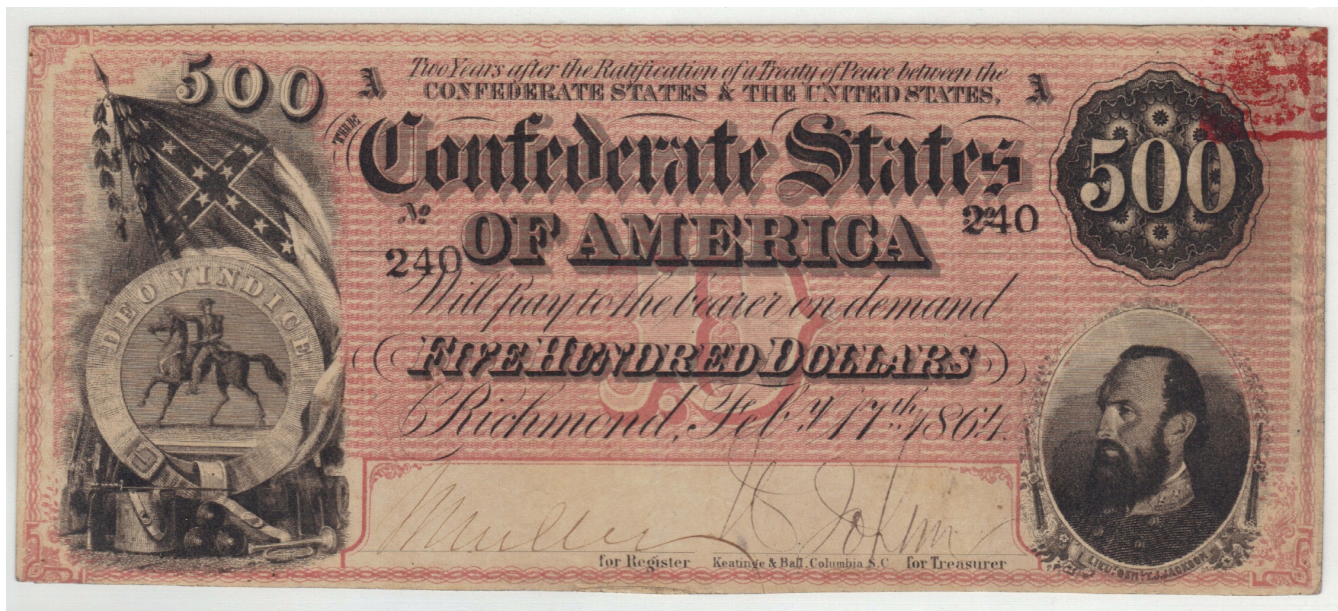 500
A Two Years after the Ratification of a Treaty of Peace between the A
CONFEDERATE STATES & THE UNITED STATES,
THE
Confederate States
500
OF AMERICA
No 240
240
Will pay to the bearer on demand
FIVE HUNDRED DOLLARS
Richmond, Feb.y 17th 1864.
DEO VINDICE
for Register Keatinge & Ball, Columbia S.C. for Treasurer
LIEUT. GEN. T.J. JACKSON